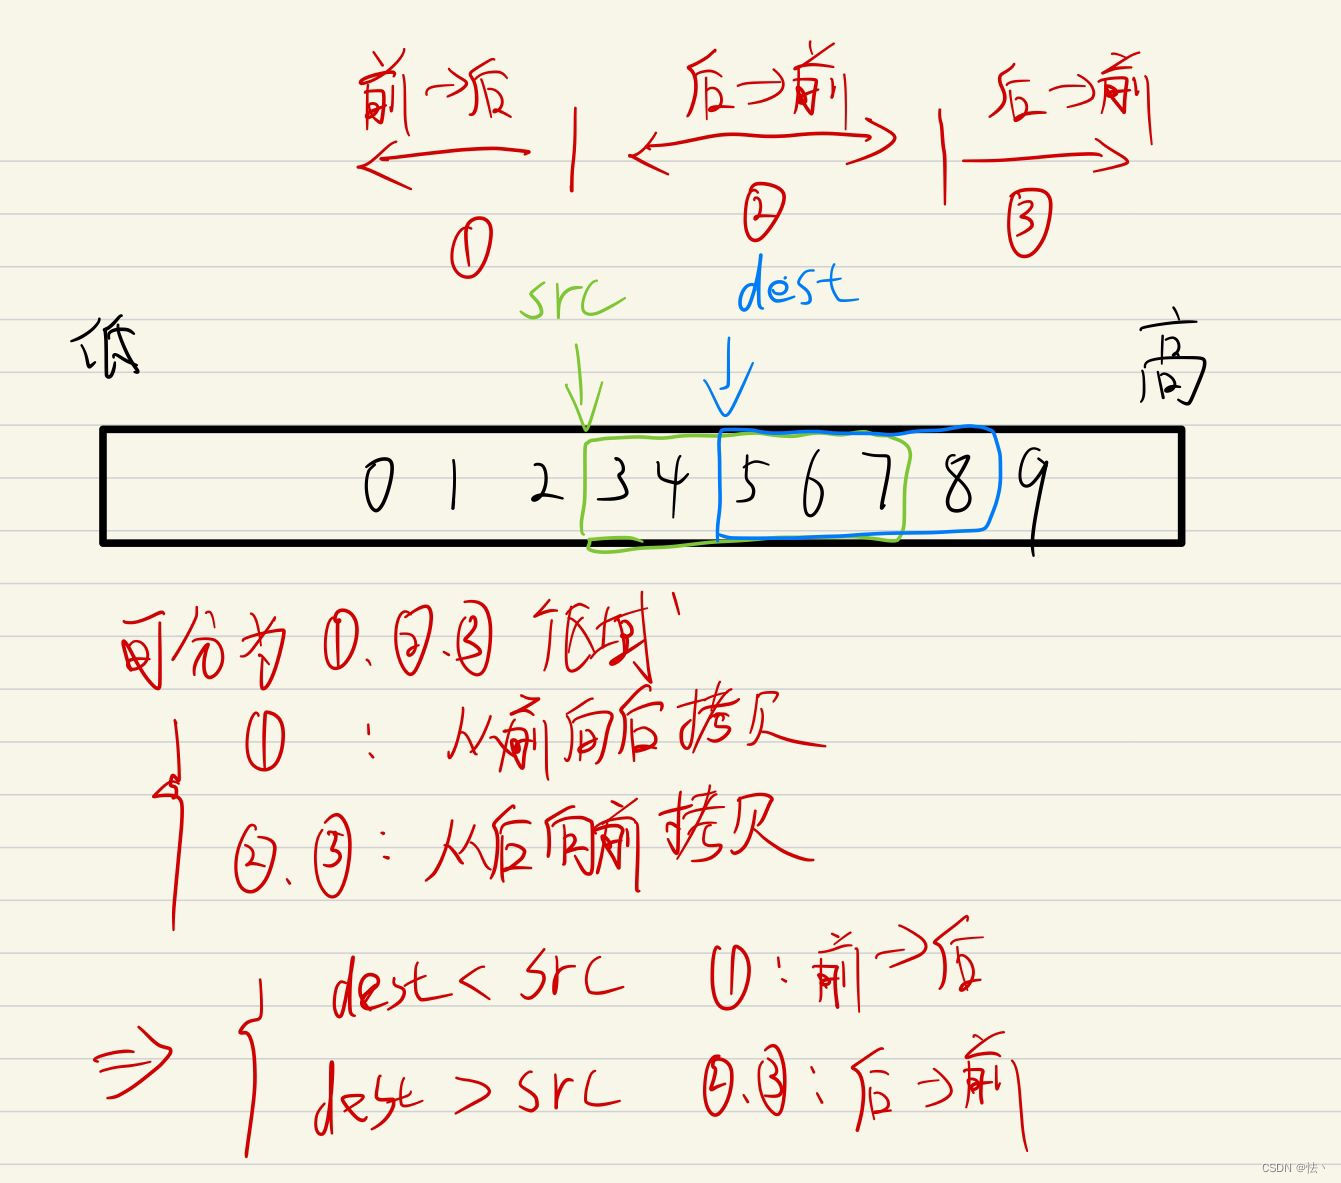 前→后 后→前 后→前
① ② ③
src dest
低 高
0 1 2 3 4 5 6 7 8 9
可分为 ①.②.③ 区域
① : 从前向后拷贝
②.③ : 从后向前拷贝
⇒ dest < src ① : 前→后
dest > src ②.③ : 后→前
CSDN @怯丶